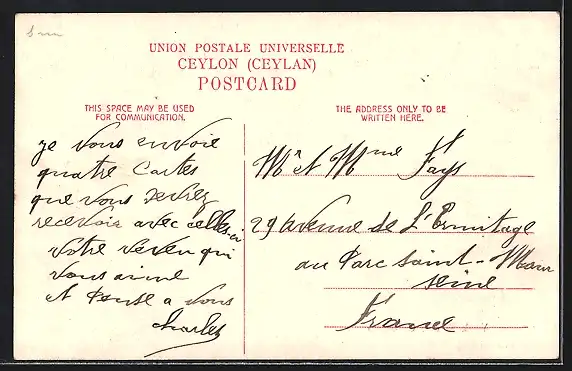 UNION POSTALE UNIVERSELLE
CEYLON (CEYLAN)
POSTCARD
THIS SPACE MAY BE USED
FOR COMMUNICATION.
THE ADDRESS ONLY TO BE
WRITTEN HERE.
Je vous envoie
quatre cartes
que vous devrez
recevoir avec celles-ci
votre neveu qui
vous aime
et pense a vous
Charles
Mr et Mme Fays
29 avenue de L'Ermitage
au Parc Saint-Maur
Seine
France